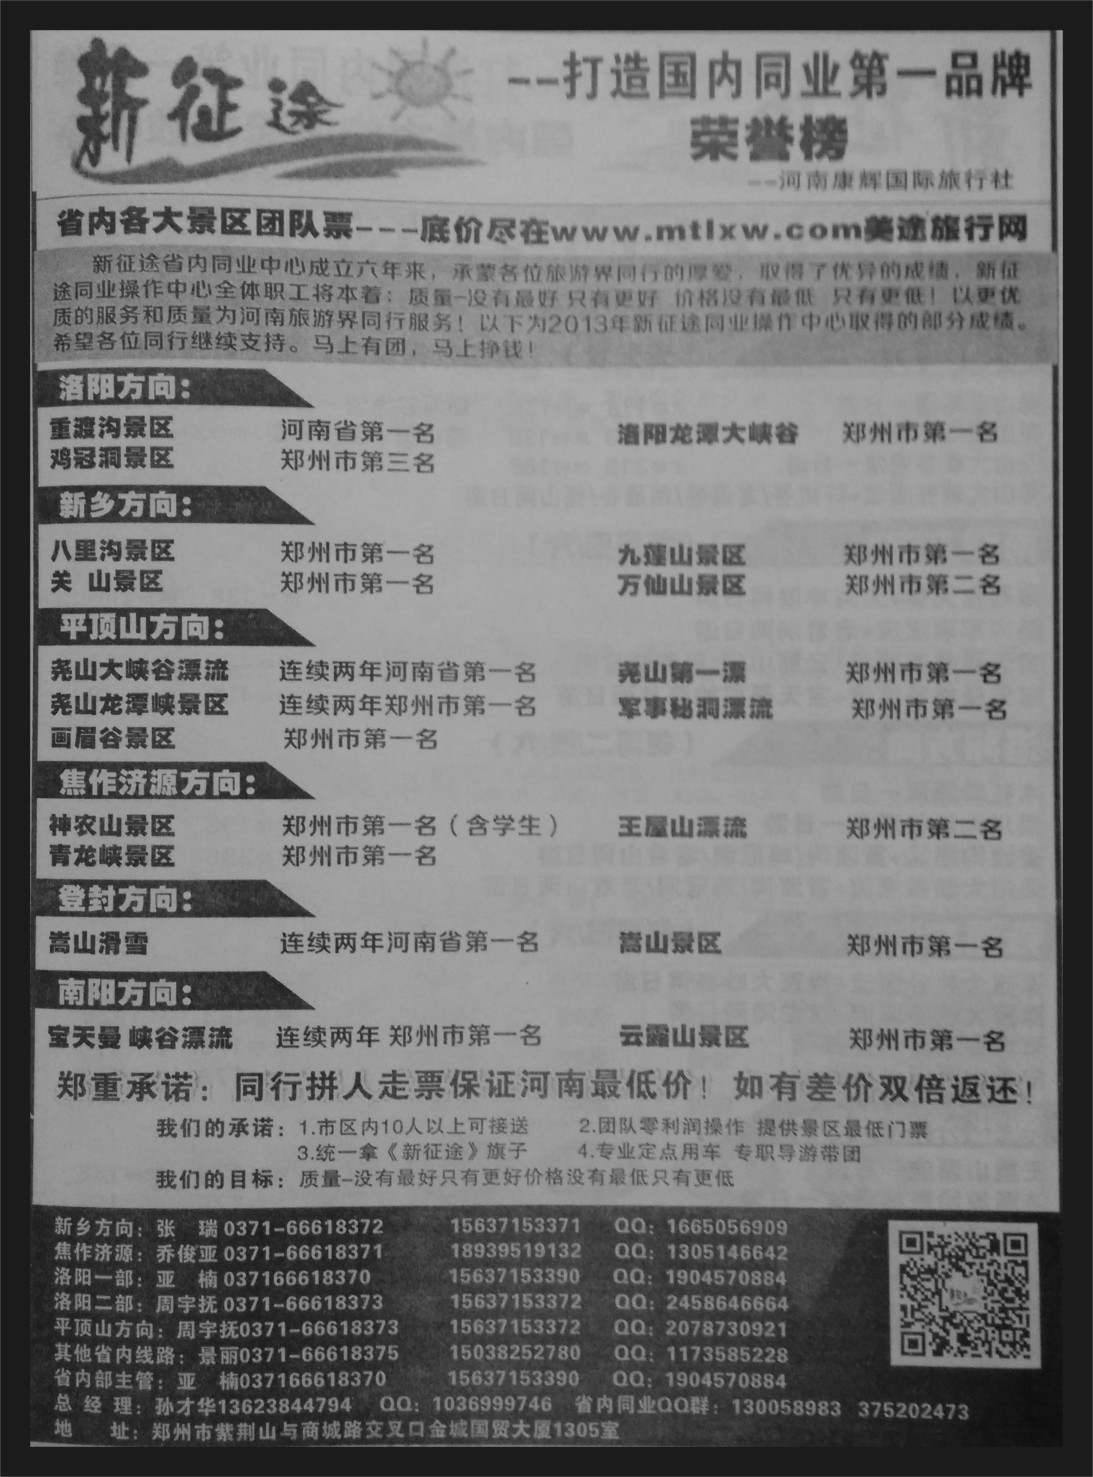 新征途
--打造国内同业第一品牌
荣誉榜
--河南康辉国际旅行社
省内各大景区团队票----底价尽在www.mtlxw.com美途旅行网
新征途省内同业中心成立六年来，承蒙各位旅游界同行的厚爱，取得了优异的成绩，新征
途同业操作中心全体职工将本着：质量-没有最好 只有更好 价格没有最低 只有更低！以更优
质的服务和质量为河南旅游界同行服务！以下为2013年新征途同业操作中心取得的部分成绩。
希望各位同行继续支持。马上有团，马上挣钱！
洛阳方向：
重渡沟景区 河南省第一名 洛阳龙潭大峡谷 郑州市第一名
鸡冠洞景区 郑州市第三名
新乡方向：
八里沟景区 郑州市第一名 九莲山景区 郑州市第一名
关 山景区 郑州市第一名 万仙山景区 郑州市第二名
平顶山方向：
尧山大峡谷漂流 连续两年河南省第一名 尧山第一漂 郑州市第一名
尧山龙潭峡景区 连续两年郑州市第一名 军事秘洞漂流 郑州市第一名
画眉谷景区 郑州市第一名
焦作济源方向：
神农山景区 郑州市第一名（含学生） 王屋山漂流 郑州市第二名
青龙峡景区 郑州市第一名
登封方向：
嵩山滑雪 连续两年河南省第一名 嵩山景区 郑州市第一名
南阳方向：
宝天曼 峡谷漂流 连续两年 郑州市第一名 云露山景区 郑州市第一名
郑重承诺：同行拼人走票保证河南最低价！如有差价双倍返还！
我们的承诺：1.市区内10人以上可接送 2.团队零利润操作 提供景区最低门票
3.统一拿《新征途》旗子 4.专业定点用车 专职导游带团
我们的目标：质量-没有最好只有更好价格没有最低只有更低
新乡方向：张 瑞 0371-66618372 15637153371 QQ：1665056909
焦作济源：乔俊亚 0371-66618371 18939519132 QQ：1305146642
洛阳一部：亚 楠 037166618370 15637153390 QQ：1904570884
洛阳二部：周宇抚 0371-66618373 15637153372 QQ：2458646664
平顶山方向：周宇抚0371-66618373 15637153372 QQ：2078730921
其他省内线路：景丽0371-66618375 15038252780 QQ：1173585228
省内部主管：亚 楠037166618370 15637153390 QQ：1904570884
总 经 理：孙才华13623844794 QQ：1036999746 省内同业QQ群：130058983 375202473
地 址：郑州市紫荆山与商城路交叉口金城国贸大厦1305室